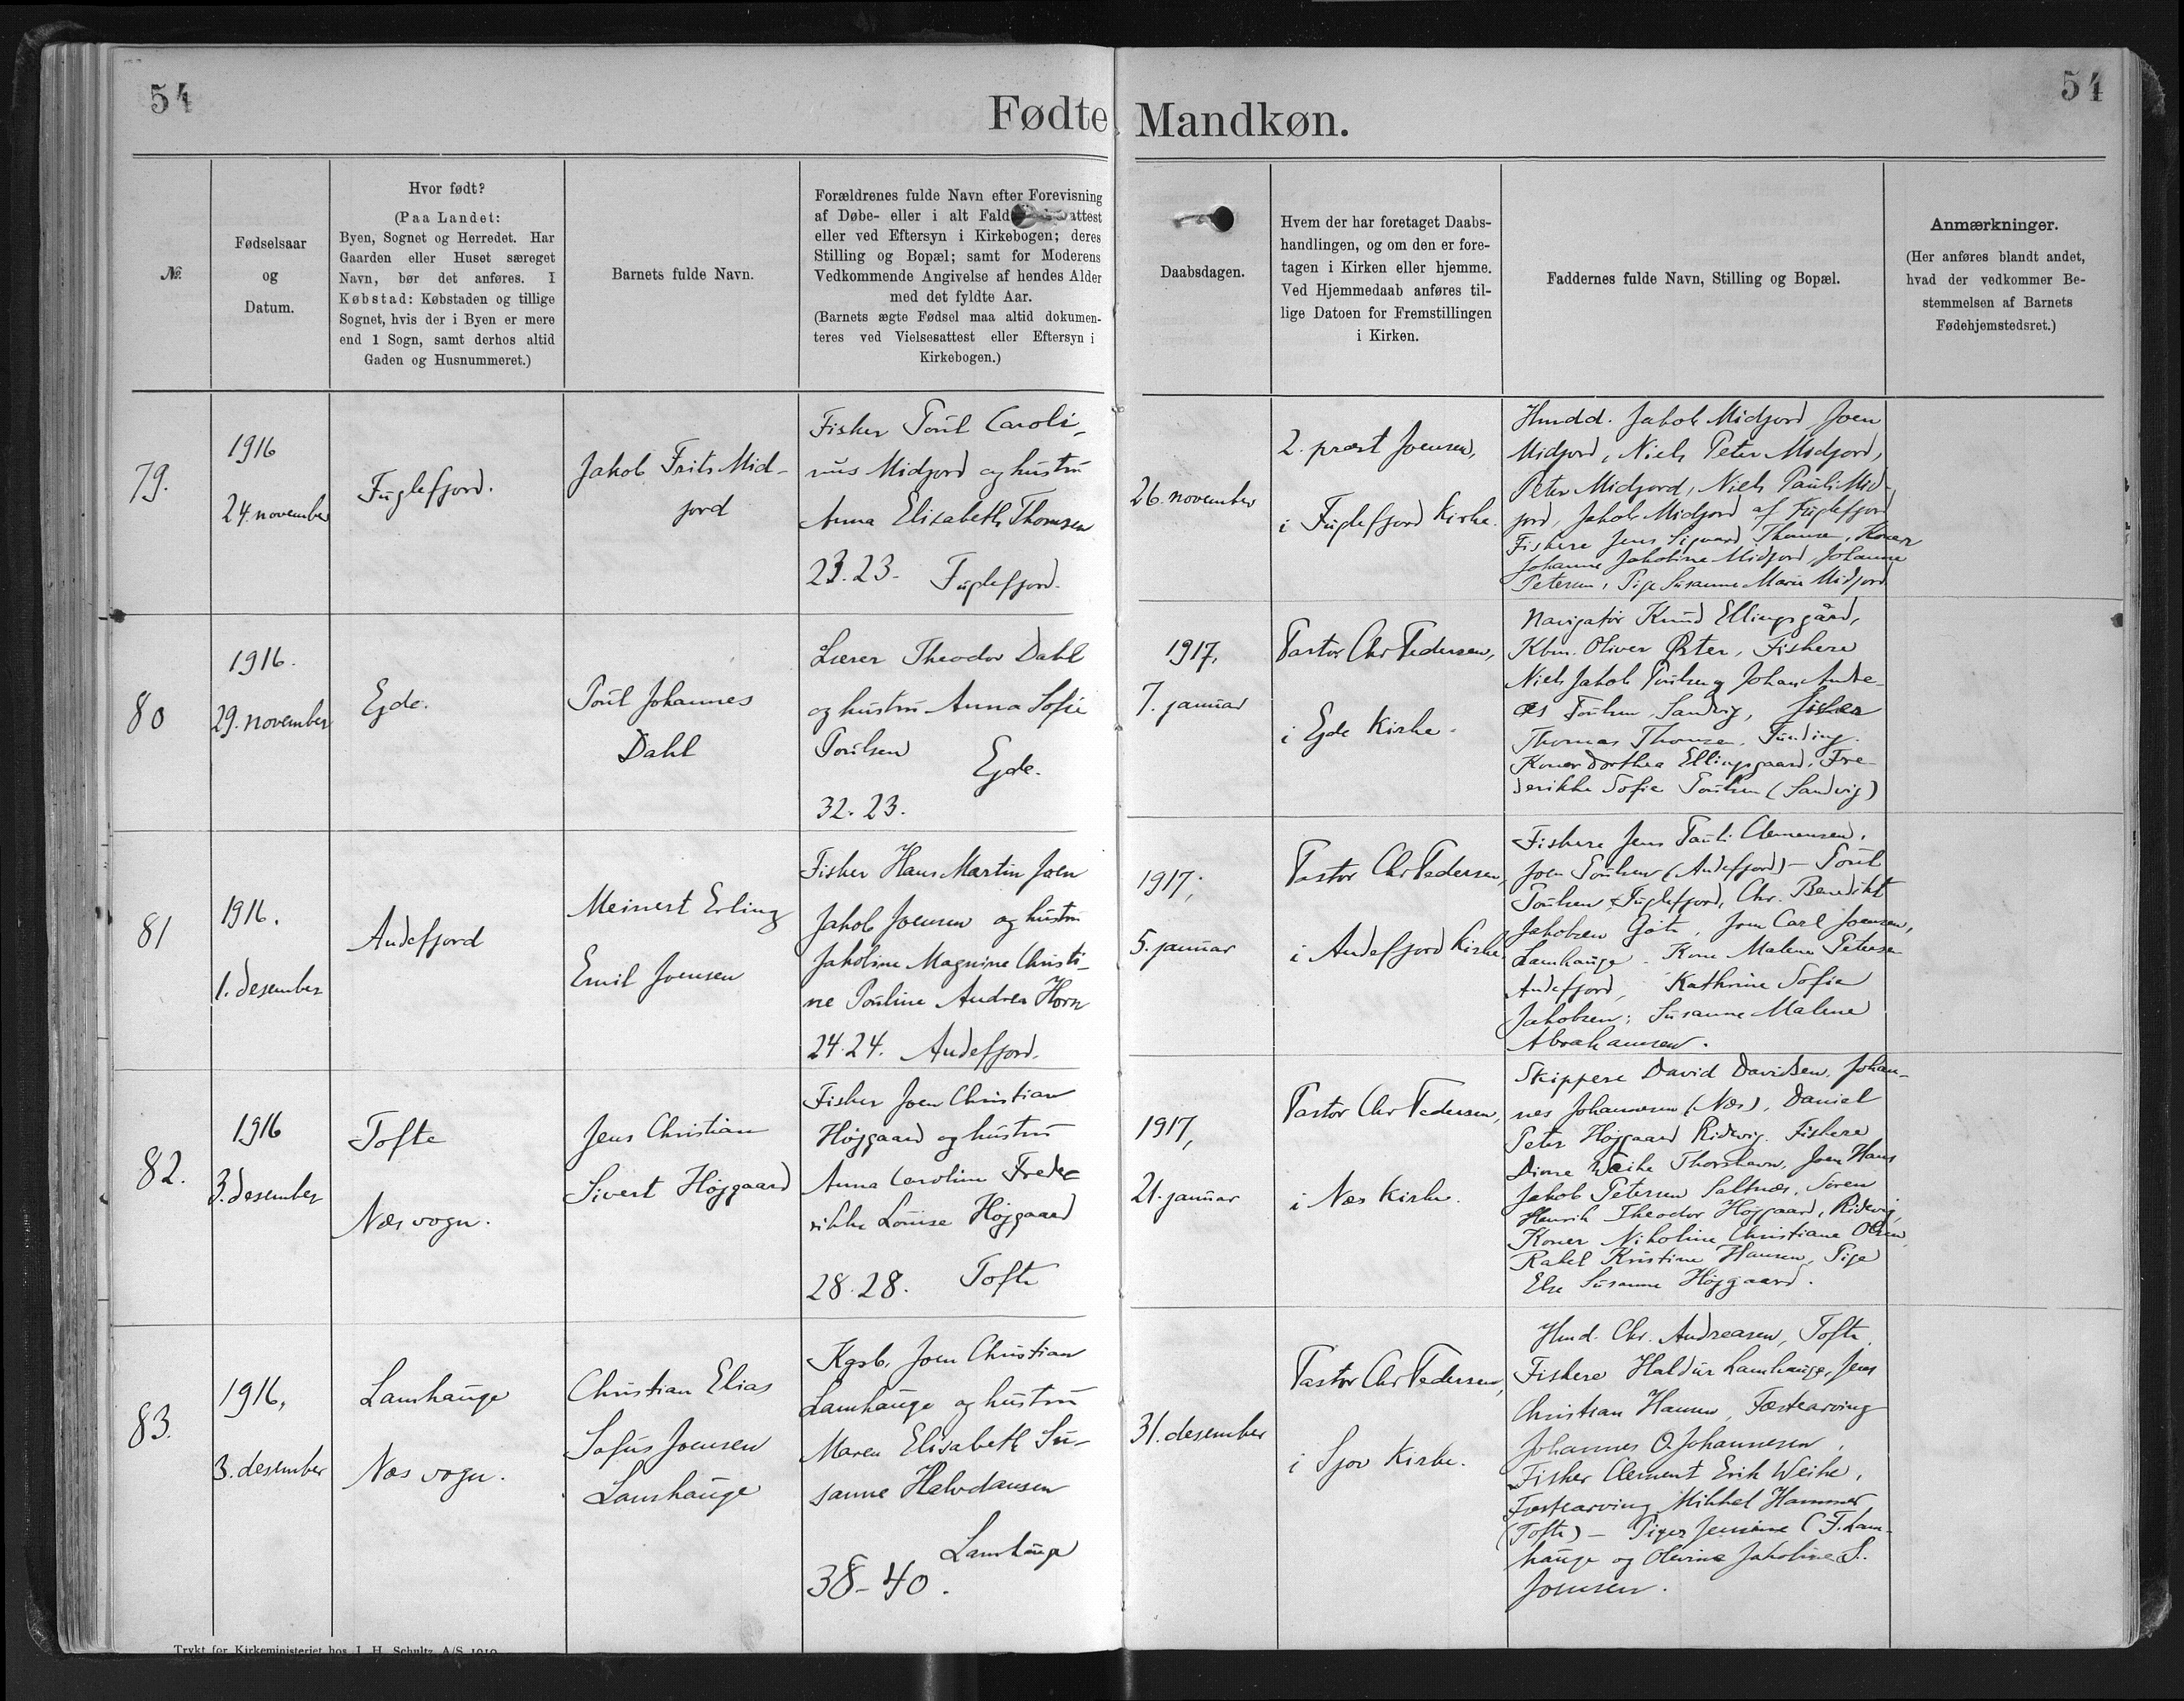 54
54
Fødte Mandkøn.
№
Fødselsaar
og
Datum.
Hvor født?
(Paa Landet:
Byen, Sognet og Herredet. Har
Gaarden eller Huset særeget
Navn, bør det anføres. I
Købstad: Købstaden og tillige
Sognet, hvis der i Byen er mere
end 1 Sogn, samt derhos altid
Gaden og Husnummeret.)
Barnets fulde Navn.
Forældrenes fulde Navn efter Forevisning
af Døbe- eller i alt Fald attest
eller ved Eftersyn i Kirkebogen; deres
Stilling og Bopæl; samt for Moderens
Vedkommende Angivelse af hendes Alder
med det fyldte Aar.
(Barnets ægte Fødsel maa altid dokumen-
teres ved Vielsesattest eller Eftersyn i
Kirkebogen.)
Daabsdagen.
Hvem der har foretaget Daabs-
handlingen, og om den er fore-
tagen i Kirken eller hjemme.
Ved Hjemmedaab anføres til-
lige Datoen for Fremstillingen
i Kirken.
Faddernes fulde Navn, Stilling og Bopæl.
Anmærkninger.
(Her anføres blandt andet,
hvad der vedkommer Be-
stemmelsen af Barnets
Fødehjemstedsret.)
79.
1916
24. november
Fuglefjord.
Jakob Frits Mid-
fjord
Fisker Poul Caroli-
nus Midjord og hustru
Anna Elisabeth Thomsen
23. 23. Fuglefjord.
26. november
2. præst Joensen,
i Fuglefjord Kirke.
Hmdd. Jakob Midjord, Joen
Midjord, Niels Peter Midjord,
Peter Midjord, Niels Pauli Mid-
jord, Jakob Midjord af Fuglefjord
Fiskere Jens Sigvard Thomsen, Koner
Johanne Jakobine Midjord, Johanne
Petersen, Pige Susanne Marie Midjord
80
1916.
29. november
Ejde.
Poul Johannes
Dahl
Lærer Theodor Dahl
og hustru Anna Sofie
Poulsen
Ejde.
32. 23.
1917,
7. januar
Pastor Chr Pedersen,
i Ejde Kirke.
Navigatør Knud Ellingsgård,
Kbm. Oliver Øster, Fiskere
Niels Jakob Poulsen og Johan Andre-
as Poulsen, Sandvig, Fisker
Thomas Thomsen, Funding.
Koner Dorthea Ellingsgaard, Fre-
derikke Sofie Poulsen (Sandvig)
81
1916.
1. desember
Andefjord
Meinert Erling
Emil Joensen
Fisker Hans Martin Joen
Jakob Joensen og hustru
Jakobine Magnine Christi-
ne Pouline Andrea Horn
24. 24. Andefjord.
1917,
5. januar
Pastor Chr Pedersen,
i Andefjord Kirke
Fiskere Jens Pauli Clemensen,
Joen Poulsen (Andefjord) - Poul
Poulsen, Fuglefjord, Chr. Benedikt
Jakobsen Gøte, Jens Carl Joensen,
Lamhauge. Kone Malene Petersen
Andefjord, Kathrine Sofie
Jakobsen; Susanne Malene
Abrahamsen.
82.
1916
3. desember
Tofte
Nes sogn.
Jens Christian
Sivert Højgaard
Fisker Joen Christian
Højgaard og hustru
Anna Caroline Frede-
rikke Louise Højgaard
28. 28. Tofte
1917,
21. januar
Pastor Chr Pedersen,
i Nes Kirke.
Skippere David Davidsen, Johan-
nes Johannesen (Nes), Daniel
Peter Højgaard Ridevig. Fiskere
Weihe Thorshavn, Joen Hans
Jakob Petersen Saltnes, Søren
Henrik Theodor Højgaard, Ridevig,
Koner Nikoline Christiane Olsen,
Rakel Kristine Hansen, Pige
Else Susanne Højgaard.
83.
1916,
3. desember
Lamhauge
Nes sogn.
Christian Elias
Sofus Joensen
Lamhauge
Kgsb. Joen Christian
Lamhauge og hustru
Maren Elisabeth Su-
sanne Halvdansen
Lamhauge
38-40.
31. desember
Pastor Chr Pedersen,
i Sjov Kirke.
Hmd. Chr. Andreasen, Tofte.
Fiskere Haldur Lamhauge, Jens
Christian Hansen, Fæstearving
Johannes O. Johannesen,
Fisker Clement Erik Weihe,
Fæstearving Mikkel Hammer
(Tofte) - Piger Jensine C. F. Lam-
hauge og Olevine Jakobine S.
Joensen.
Trykt for Kirkeministeriet hos J. H. Schultz A/S 1910